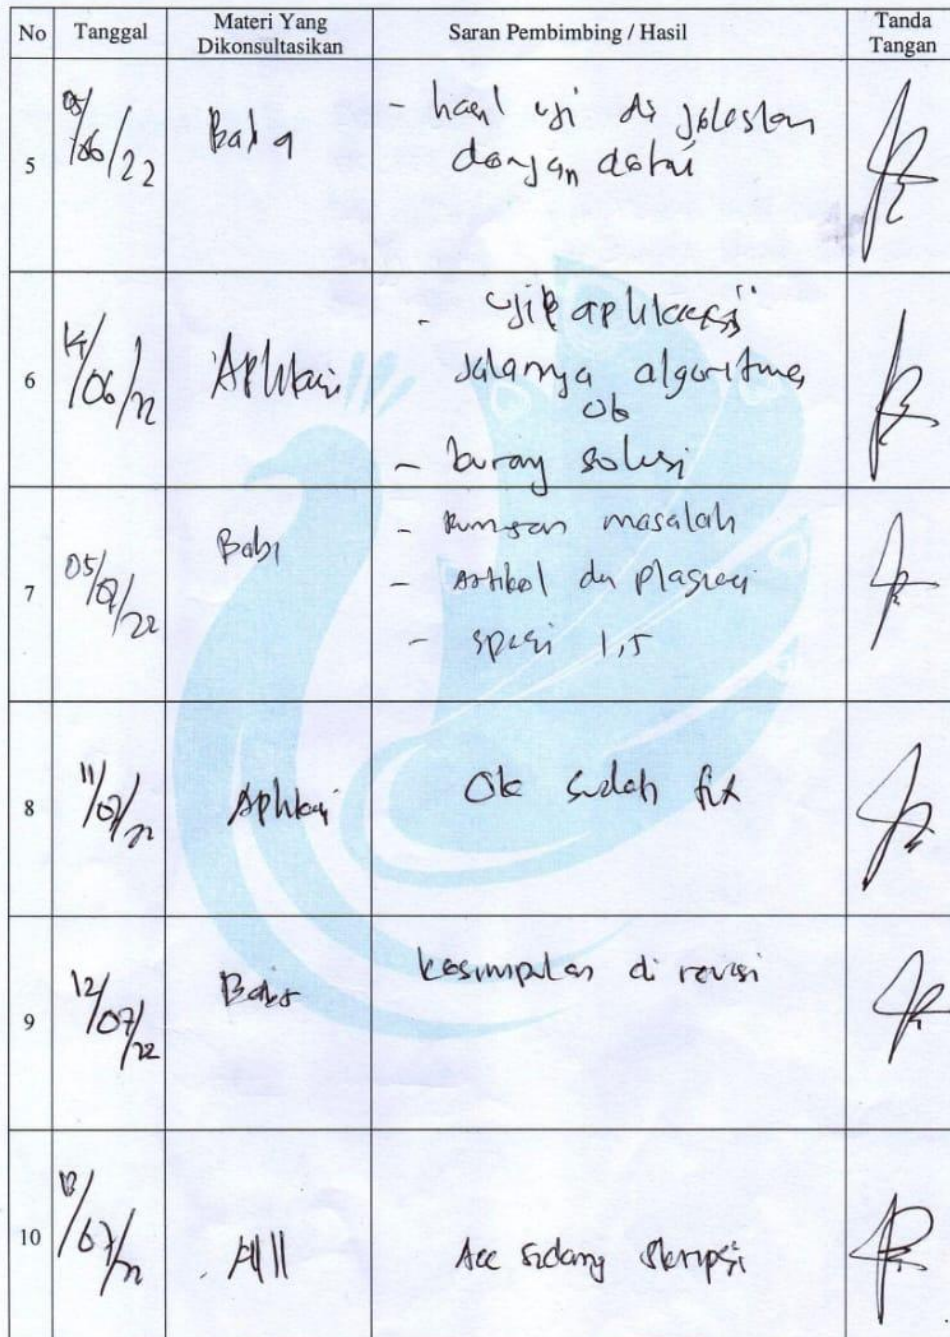 No Tanggal Materi Yang Dikonsultasikan Saran Pembimbing / Hasil Tanda Tangan
5 /06/22 Bab 4 - hasil uji di jelaskan
dengan detail
6 14/06/22 Aplikasi - uji aplikasi
jalanya algoritma
ok
- kurang solusi
7 05/07/22 Bab 1 - Rumusan masalah
- Artikel dan plagiasi
- spasi 1,5
8 11/07/22 Aplikasi Ok sudah fix
9 12/07/22 Bab 5 kesimpulan di revisi
10 /07/22 All Acc sidang skripsi